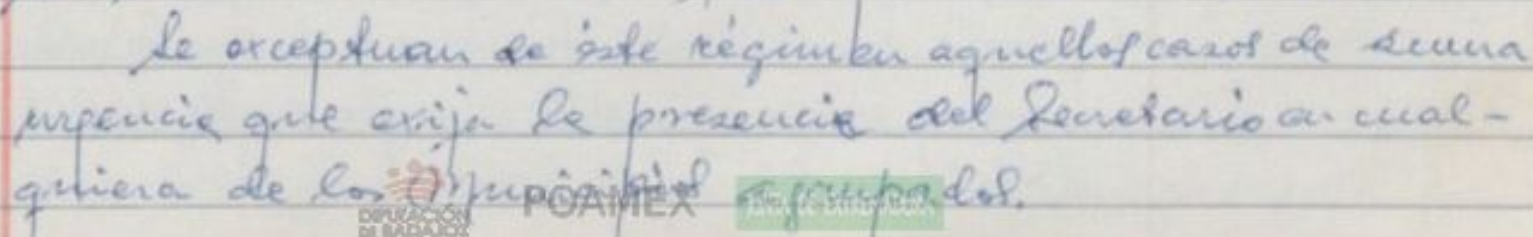 Se exceptuan de éste régimen aquellos casos de suma
urgencia que exija la presencia del Secretario en cual-
quiera de los municipios agrupados.
DIPUTACIÓN
DE BADAJOZ
POAMEX
JUNTA DE EXTREMADURA